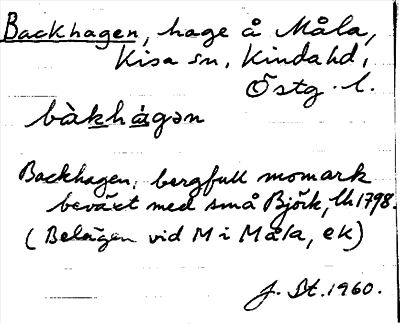 Backhagen, hage å Måla,
Kisa sn, Kinda hd,
Östg. l.
bàkhágən
Backhagen, bergfull momark
beväxt med små Björk, lh 1798.
(Belägen vid M i Måla, ek)
J. St. 1960.